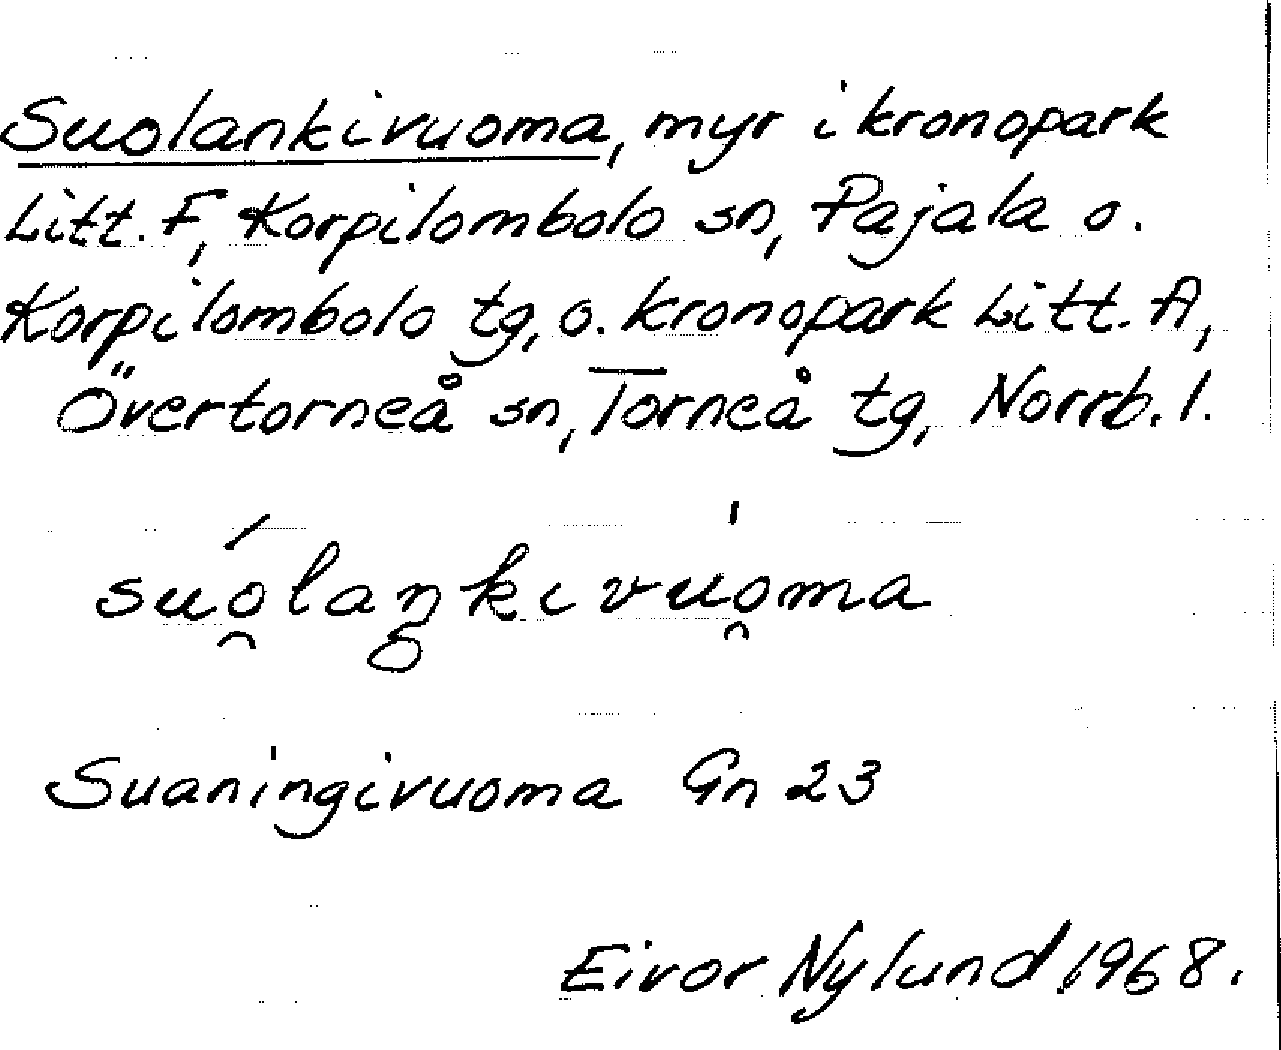 Suolankivuoma, myr i kronopark
Litt. F, Korpilombolo sn, Pajala o.
Korpilombolo tg, o. kronopark Litt. A,
Övertorneå sn, Torneå tg, Norrb. l.
suó̯laŋkivu̯oma
Suaningivuoma Gn 23
Eivor Nylund 1968.